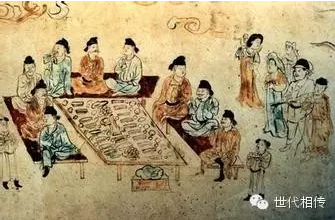 世代相传